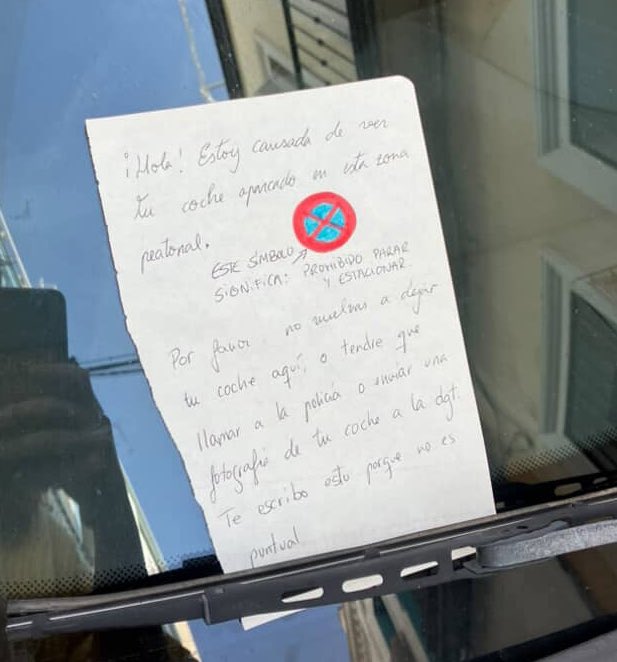 ¡Hola! Estoy cansada de veer
tu coche aparcado en esta zona
peatonal.
ESTE SÍMBOLO
SIGNIFICA: PROHIBIDO PARAR
Y ESTACIONAR.
Por favor no vuelvas a dejar
tu coche aquí, o tendre que
llamar a la policía o enviar una
fotografía de tu coche a la dgt.
Te escribo esto porque no es
puntual.